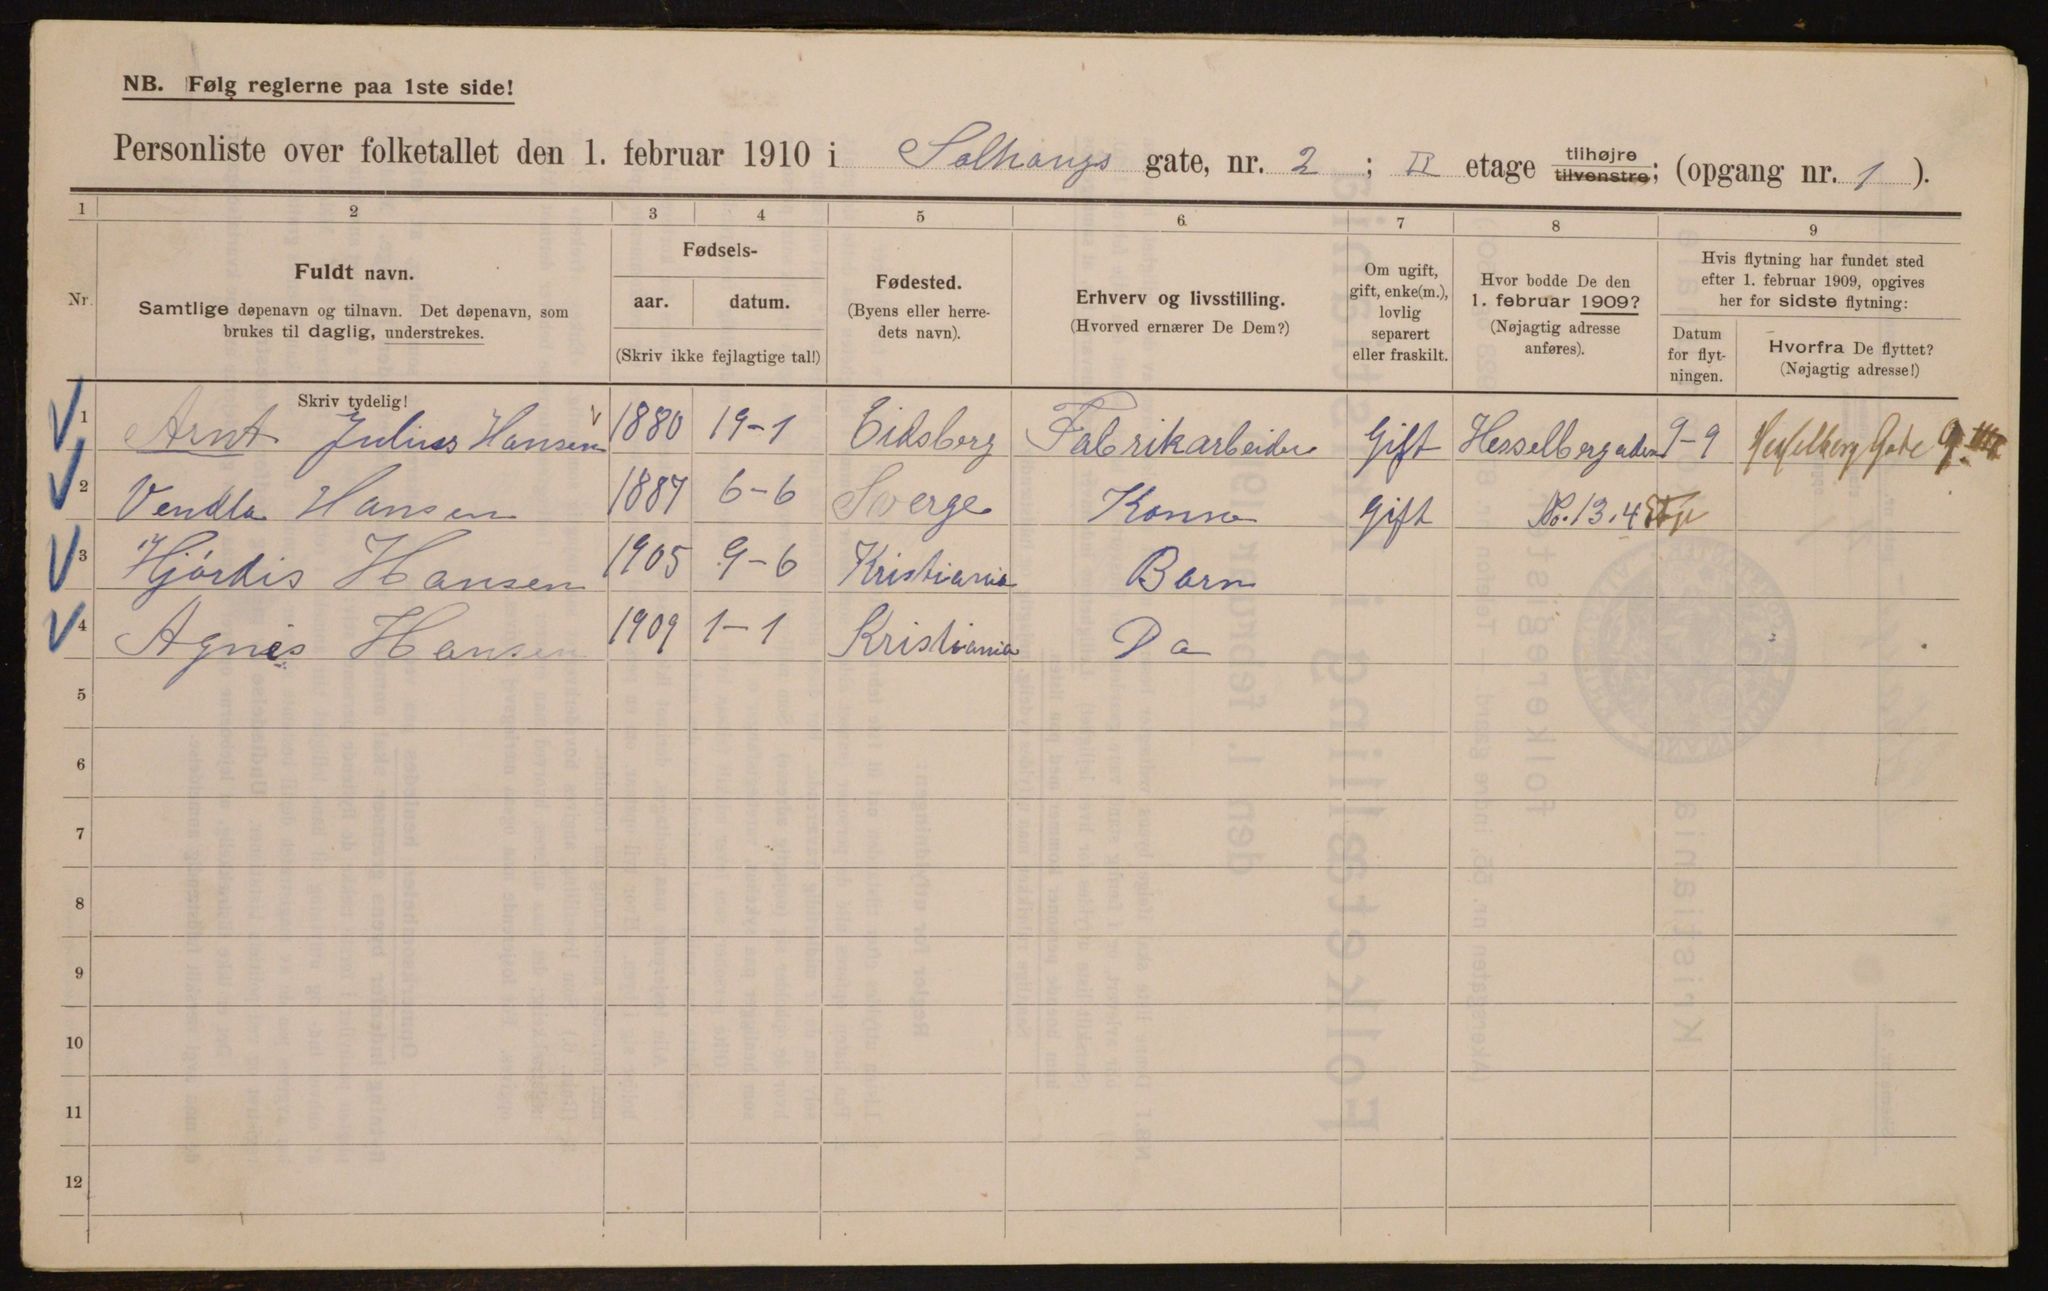 NB. Følg reglerne paa 1ste side!
Personliste over folketallet den 1. februar 1910 i Solhaugs gate, nr. 2 ; II etage tilhøjre tilvenstre; (opgang nr. 1 ).
1 2 3 4 5 6. 7 8 9
Nr.
Fuldt navn.
Samtlige døpenavn og tilnavn. Det døpenavn, som
brukes til daglig, understrekes.
Skriv tydelig!
Fødsels-
aar. datum.
(Skriv ikke fejlagtige tal!)
Fødested.
(Byens eller herre-
dets navn).
Erhverv og livsstilling.
(Hvorved ernærer De Dem?)
Om ugift,
gift, enke(m.),
lovlig
separert
eller fraskilt.
Hvor bodde De den
1. februar 1909?
(Nøjagtig adresse
anføres).
Hvis flytning har fundet sted
efter 1. februar 1909, opgives
her for sidste flytning:
Datum
for flyt-
ningen.
Hvorfra De flyttet?
(Nøjagtig adresse!)
1 Arnt Julius Hansen 1880 19-1 Eidsberg Fabrikarbeider Gift Hesselbergaden 9-9 Hesselberg Gate 9
2 Vendla Hansen 1887 6-6 Sverge Kone Gift No. 13. 4 Etge
3 Hjórdis Hansen 1905 9-6 Kristiania Barn
4 Agnes Hansen 1909 1-1 Kristiania Do
5
6
7
8
9
10
11
12